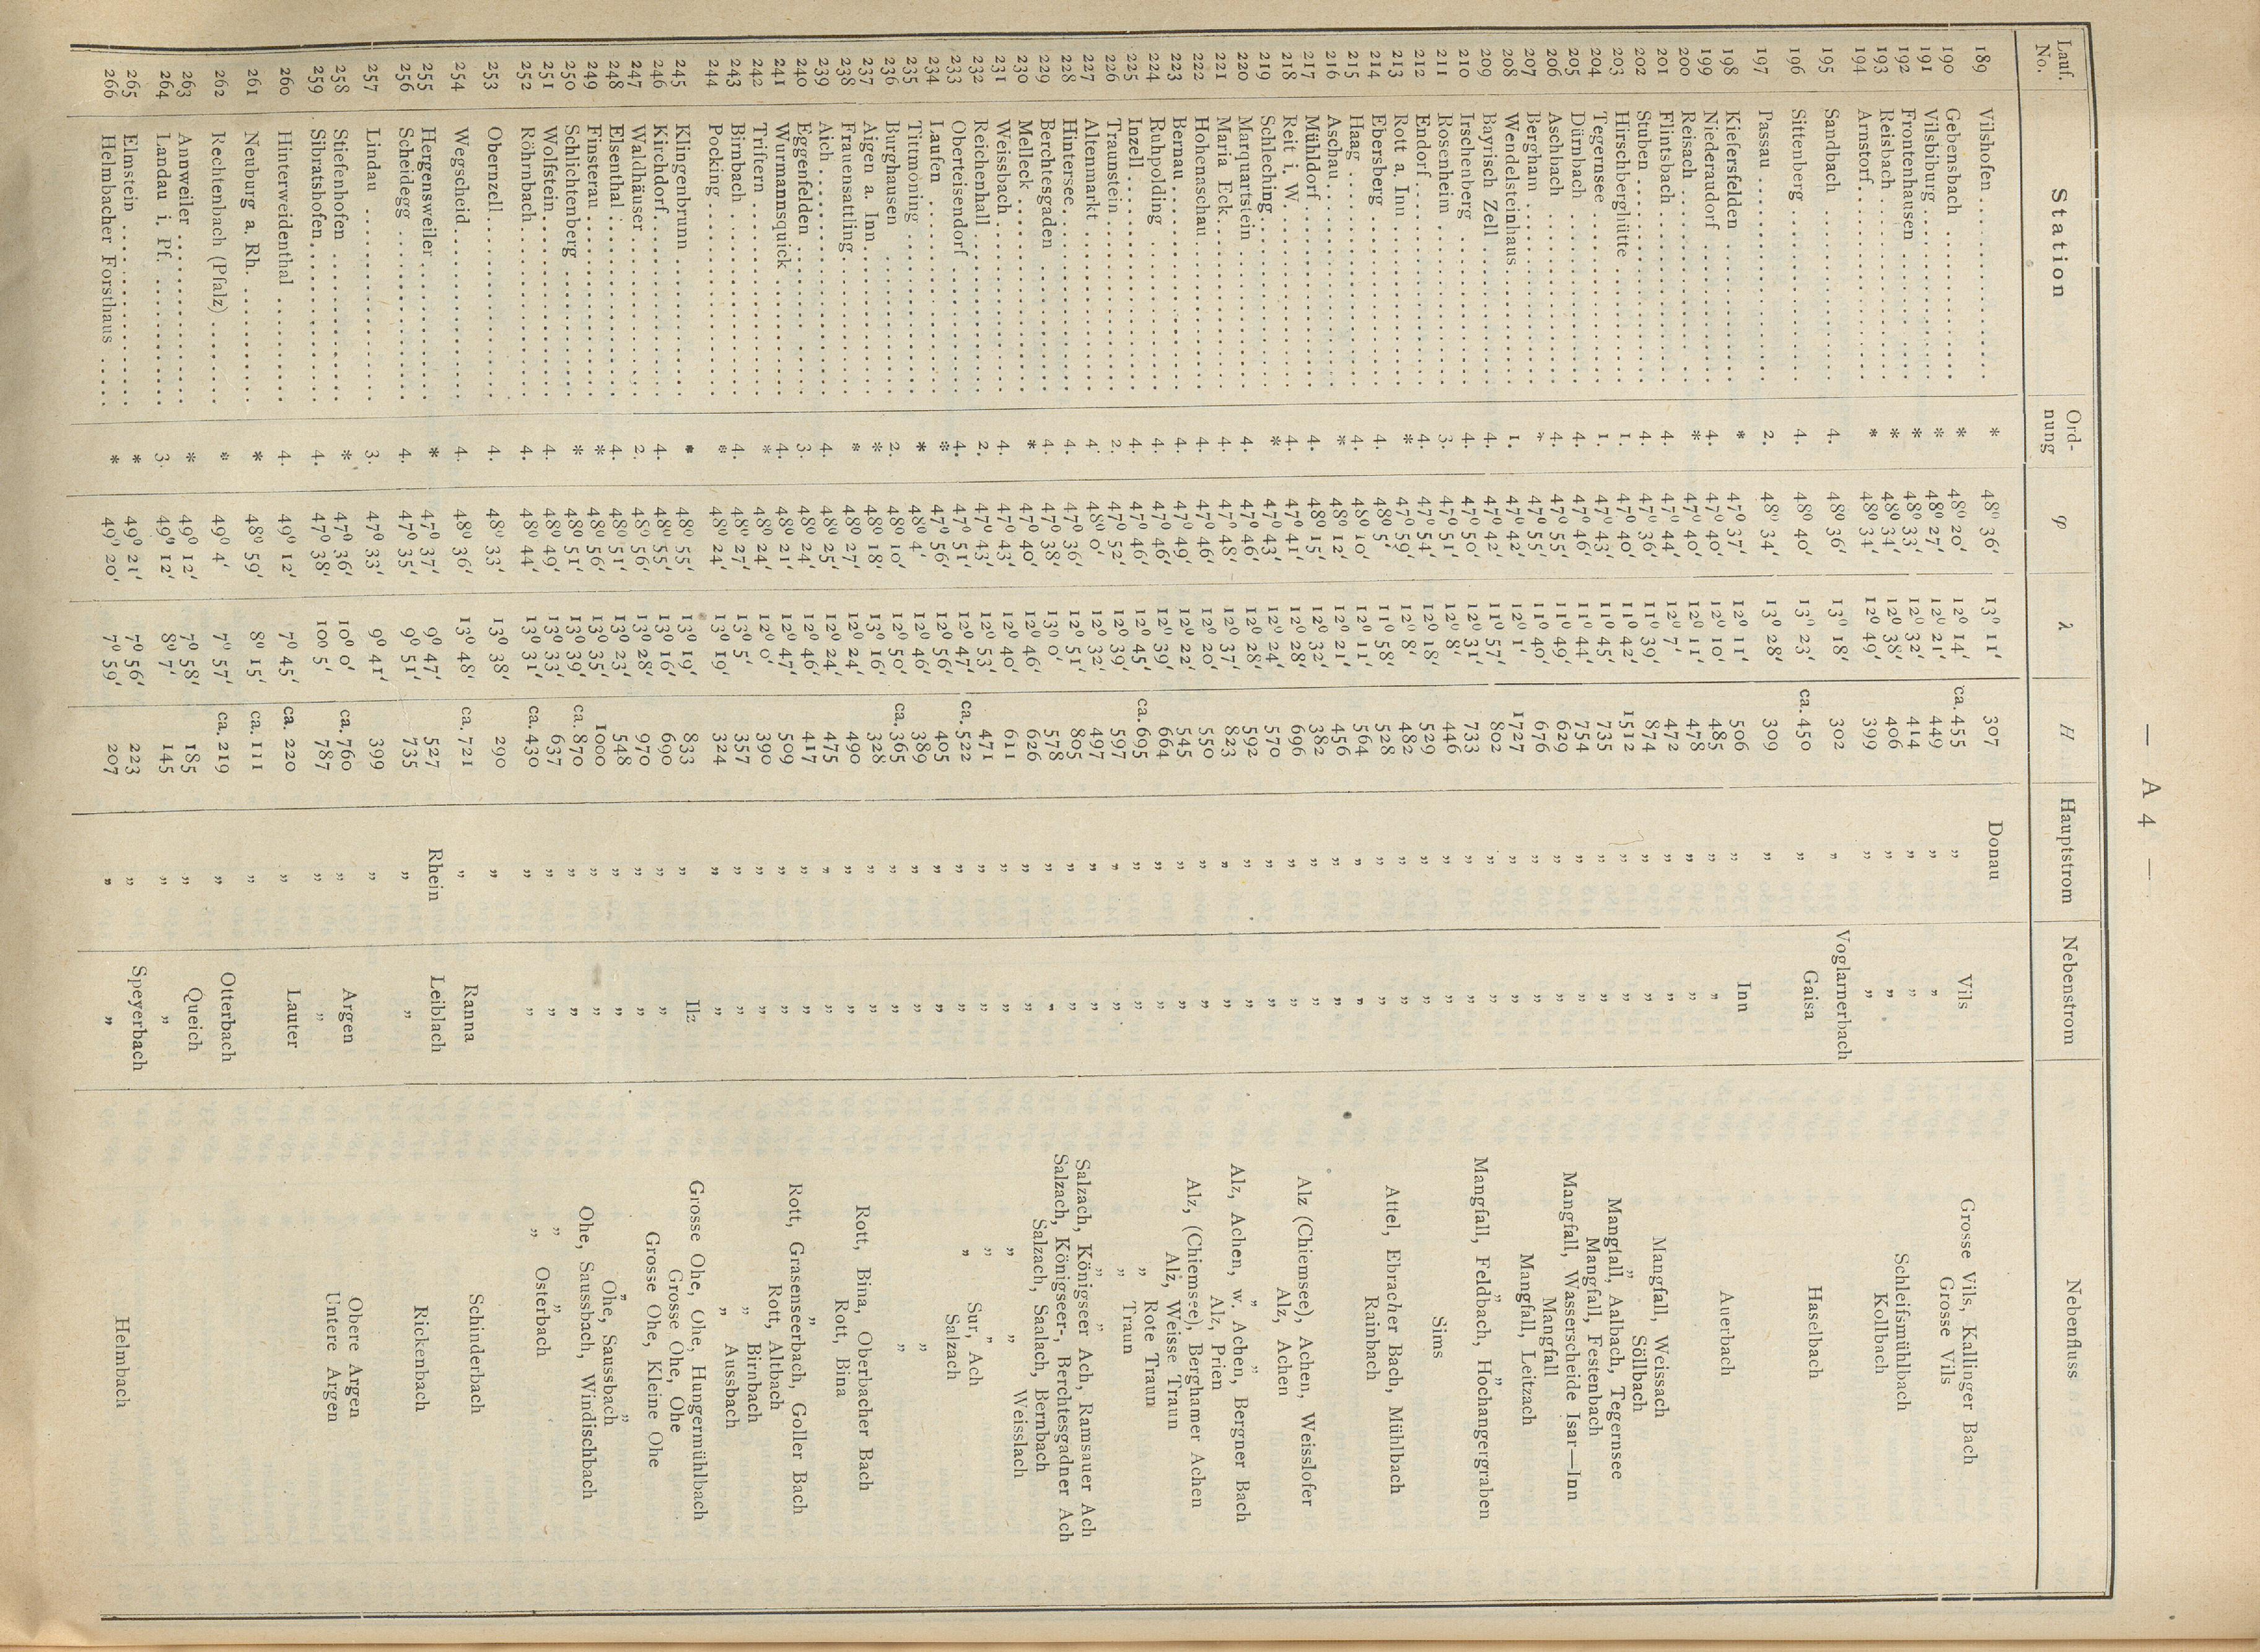 — A 4 —
Lauf. No. Station Ord-nung φ λ H Hauptstrom Nebenstrom Nebenfluss
189 Vilshofen * 48° 36‘ 13° 11‘ 307 Donau
190 Gebensbach * 48° 20‘ 12° 14‘ ca. 455 „ Vils Grosse Vils, Kallinger Bach
191 Vilsbiburg * 48° 27‘ 12° 21‘ 449 „ „ Grosse Vils
192 Frontenhausen * 48° 33‘ 12° 32‘ 414 „ „
193 Reisbach * 48° 34‘ 12° 38‘ 406 „ „ Schleifsmühlbach
194 Arnstorf * 48° 34‘ 12° 49‘ 399 „ „ Kollbach
195 Sandbach 4. 48° 36‘ 13° 18‘ 302 „ Voglarnerbach
196 Sittenberg 4. 48° 40‘ 13° 23‘ ca. 450 „ Gaisa Haselbach
197 Passau 2. 48° 34‘ 13° 28‘ 309 „
198 Kiefersfelden * 47° 37‘ 12° 11‘ 506 „ Inn
199 Niederaudorf 4. 47° 40‘ 12° 10‘ 485 „ „ Auerbach
200 Reisach * 47° 40‘ 12° 11‘ 478 „ „
201 Flintsbach 4. 47° 44‘ 12° 7‘ 472 „ „
202 Stuben 4. 47° 36‘ 11° 39‘ 874 „ „ Mangfall, Weissach
203 Hirschberghütte 1. 47° 40‘ 11° 42‘ 1512 „ „ „ Söllbach
204 Tegernsee 1. 47° 43‘ 11° 45‘ 735 „ „ Mangfall, Aalbach, Tegernsee
205 Dürnbach 4. 47° 46‘ 11° 44‘ 754 „ „ Mangfall, Festenbach
206 Aschbach 4. 47° 55‘ 11° 49‘ 629 „ „ Mangfall, Wasserscheide Isar—Inn
207 Bergham * 47° 55‘ 11° 40‘ 676 „ „ Mangfall
208 Wendelsteinhaus 1. 47° 42‘ 12° 1‘ 1727 „ „ Mangfall, Leitzach
209 Bayrisch Zell 4. 47° 42‘ 11° 57‘ 802 „ „ „ „
210 Irschenberg 4. 47° 50‘ 12° 31‘ 733 „ „ Mangfall, Feldbach, Hochangergraben
211 Rosenheim 3. 47° 51‘ 12° 8‘ 446 „ „
212 Endorf 4. 47° 54‘ 12° 18‘ 529 „ „ Sims
213 Rott a. Inn * 47° 59‘ 12° 8‘ 482 „ „
214 Ebersberg 4. 48° 5‘ 11° 58‘ 528 „ „ Attel, Ebracher Bach, Mühlbach
215 Haag 4. 48° 10‘ 12° 11‘ 564 „ „ Rainbach
216 Aschau * 48° 12‘ 12° 21‘ 456 „ „
217 Mühldorf 4. 48° 15‘ 12° 32‘ 382 „ „
218 Reit i. W. 4. 47° 41‘ 12° 28‘ 696 „ „ Alz (Chiemsee), Achen, Weisslofer
219 Schleching * 47° 43‘ 12° 24‘ 570 „ „ Alz, Achen
220 Marquartstein 4. 47° 46‘ 12° 28‘ 592 „ „ „ „
221 Maria Eck 4. 47° 48‘ 12° 37‘ 823 „ „ Alz, Achen, w. Achen, Bergner Bach
222 Hohenaschau 4. 47° 46‘ 12° 20‘ 550 „ „ Alz, Prien
223 Bernau 4. 47° 49‘ 12° 22‘ 545 „ „ Alz, (Chiemsee), Berghamer Achen
224 Ruhpolding 4. 47° 46‘ 12° 39‘ 664 „ „ Alz, Weisse Traun
225 Inzell 4. 47° 46‘ 12° 45‘ ca. 695 „ „ „ Rote Traun
226 Traunstein 2. 47° 52‘ 12° 39‘ 597 „ „ „ Traun
227 Altenmarkt 4. 48° 0‘ 12° 32‘ 497 „ „ „ „
228 Hintersee 4. 47° 36‘ 12° 51‘ 805 „ „ Salzach, Königseer Ach, Ramsauer Ach
229 Berchtesgaden 4. 47° 38‘ 13° 0‘ 578 „ „ Salzach, Königseer-, Berchtesgadner Ach
230 Melleck * 47° 40‘ 12° 46‘ 626 „ „ Salzach, Saalach, Bernbach
231 Weissbach 4. 47° 43‘ 12° 40‘ 611 „ „ „ „ Weisslach
232 Reichenhall 2. 47° 43‘ 12° 53‘ 471 „ „ „ „
233 Oberteisendorf 4. 47° 51‘ 12° 47‘ ca. 522 „ „ „ Sur, Ach
234 Laufen * 47° 56‘ 12° 56‘ 405 „ „ Salzach
235 Tittmoning * 48° 4‘ 12° 46‘ 389 „ „ „
236 Burghausen 2. 48° 10‘ 12° 50‘ ca. 365 „ „ „
237 Aigen a. Inn * 48° 18‘ 13° 16‘ 328 „ „
238 Frauensattling * 48° 27‘ 12° 24‘ 490 „ „ Rott, Bina, Oberbacher Bach
239 Aich 4. 48° 25‘ 12° 24‘ 475 „ „ Rott, Bina
240 Eggenfelden 3. 48° 24‘ 12° 46‘ 417 „ „ „
241 Wurmannsquick 4. 48° 21‘ 12° 47‘ 509 „ „ Rott, Grasenseerbach, Goller Bach
242 Triftern * 48° 24‘ 12° 0‘ 390 „ „ Rott, Altbach
243 Birnbach 4. 48° 27‘ 13° 5‘ 357 „ „ „ Birnbach
244 Pocking * 48° 24‘ 13° 19‘ 324 „ „ „ Aussbach
245 Klingenbrunn * 48° 55‘ 13° 19‘ 833 „ Ilz Grosse Ohe, Ohe, Hungermühlbach
246 Kirchdorf 4. 48° 55‘ 13° 16‘ 690 „ „ Grosse Ohe, Ohe
247 Waldhäuser 2. 48° 56‘ 13° 28‘ 970 „ „ Grosse Ohe, Kleine Ohe
248 Elsenthal 4. 48° 51‘ 13° 23‘ 548 „ „ „ „
249 Finsterau * 48° 56‘ 13° 35‘ 1000 „ „ Ohe, Saussbach
250 Schlichtenberg * 48° 51‘ 13° 39‘ ca. 870 „ „ Ohe, Saussbach, Windischbach
251 Wolfstein 4. 48° 49‘ 13° 33‘ 637 „ „ „ „
252 Röhrnbach 4. 48° 44‘ 13° 31‘ ca. 430 „ „ „ Osterbach
253 Obernzell 4. 48° 33‘ 13° 38‘ 290 „
254 Wegscheid 4. 48° 36‘ 13° 48‘ ca. 721 „ Ranna Schinderbach
255 Hergensweiler * 47° 37‘ 9° 47‘ 527 Rhein Leiblach
256 Scheidegg 4. 47° 35‘ 9° 51‘ 735 „ „ Rickenbach
257 Lindau 3. 47° 33‘ 9° 41‘ 399 „
258 Stiefenhofen * 47° 36‘ 10° 0‘ ca. 760 „ Argen Obere Argen
259 Sibratshofen 4. 47° 38‘ 10° 5‘ 787 „ „ Untere Argen
260 Hinterweidenthal 4. 49° 12‘ 7° 45‘ ca. 220 „ Lauter
261 Neuburg a. Rh. * 48° 59‘ 8° 15‘ ca. 111 „
262 Rechtenbach (Pfalz) * 49° 4‘ 7° 57‘ ca. 219 „ Otterbach
263 Annweiler * 49° 12‘ 7° 58‘ 185 „ Queich
264 Landau i. Pf. 3. 49° 12‘ 8° 7‘ 145 „ „
265 Elmstein * 49° 21‘ 7° 56‘ 223 „ Speyerbach
266 Helmbacher Forsthaus * 49° 20‘ 7° 59‘ 207 „ „ Helmbach